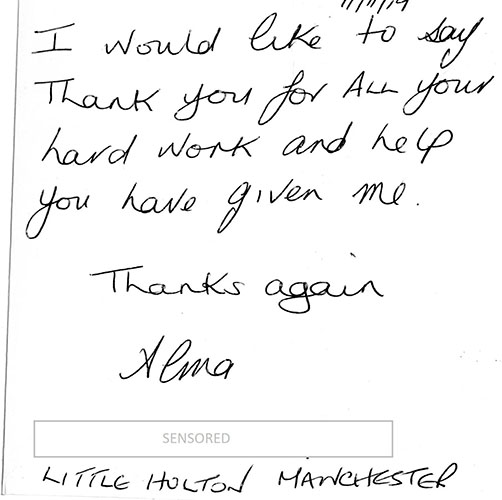 I would like to say
Thank you for ALL your
hard work and help
you have given me.
Thanks again
Alma
SENSORED
LITTLE HULTON MANCHESTER